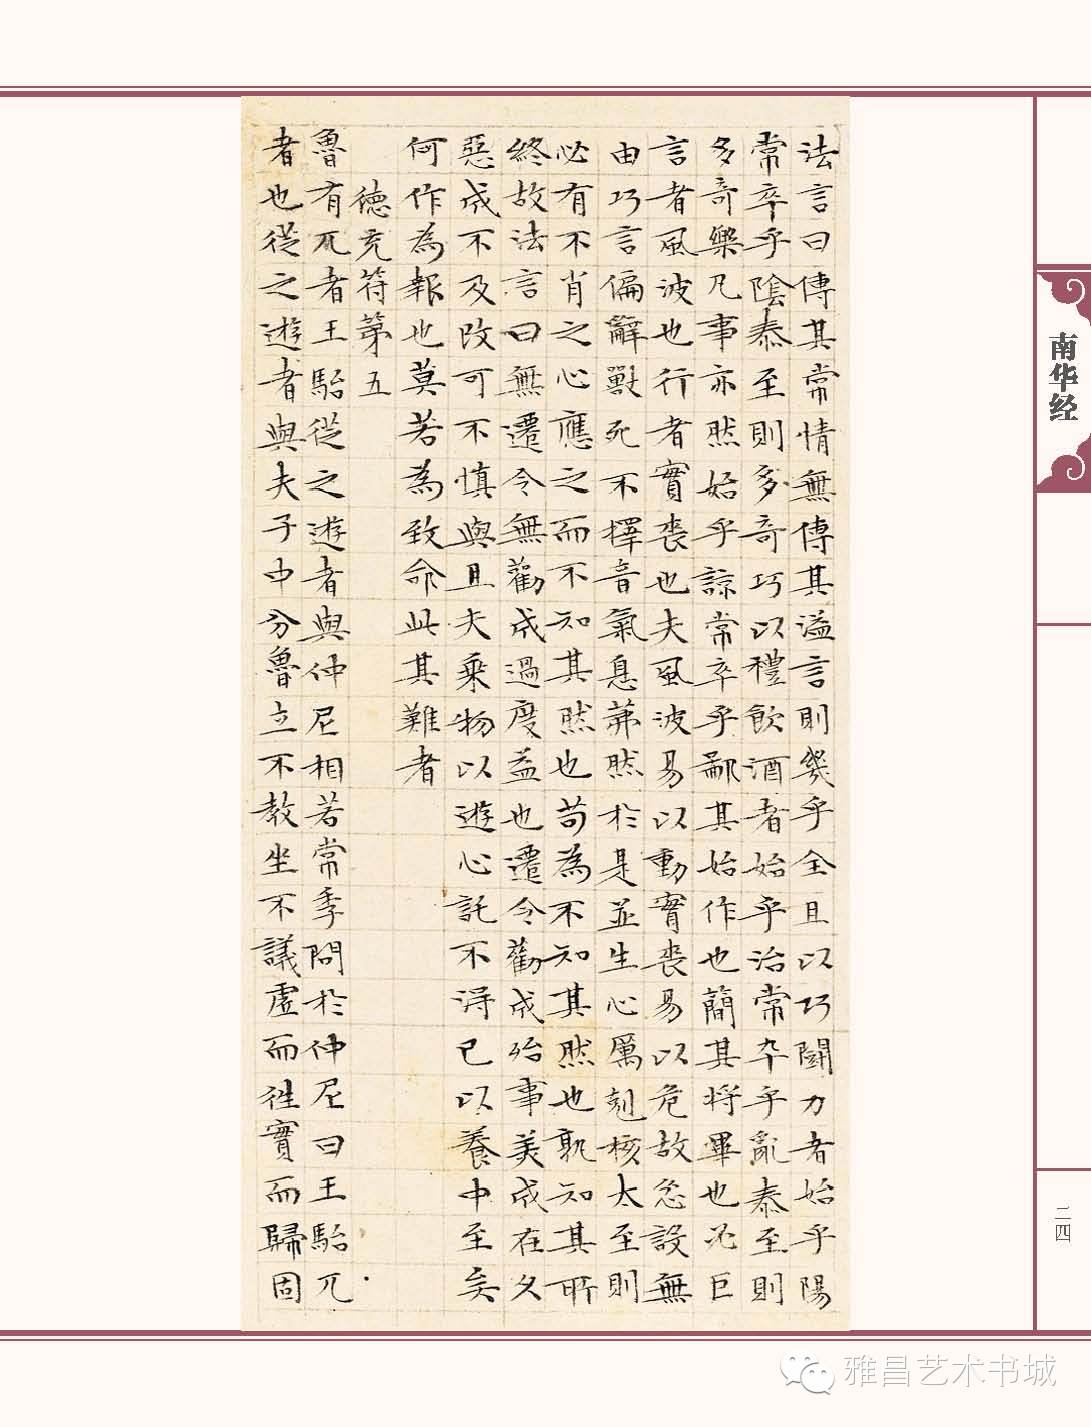 法言曰傳其常情無傳其溢言則幾乎全且以巧鬪力者始乎陽
常卒乎陰泰至則多奇巧以禮飲酒者始乎治常卒乎亂泰至則
多奇樂凡事亦然始乎諒常卒乎鄙其始作也簡其將畢也必巨
言者風波也行者實喪也夫風波易以動實喪易以危故忿設無
由巧言偏辭獸死不擇音氣息茀然於是並生心厲剋核太至則
必有不肖之心應之而不知其然也苟為不知其然也孰知其所
終故法言曰無遷令無勸成過度益也遷令勸成殆事美成在久
惡成不及改可不慎與且夫乘物以遊心託不得已以養中至矣
何作為報也莫若為致命此其難者
德充符第五
魯有兀者王駘從之遊者與仲尼相若常季問於仲尼曰王駘兀
者也從之遊者與夫子中分魯立不教坐不議虛而往實而歸固
南华经
二四
雅昌艺术书城